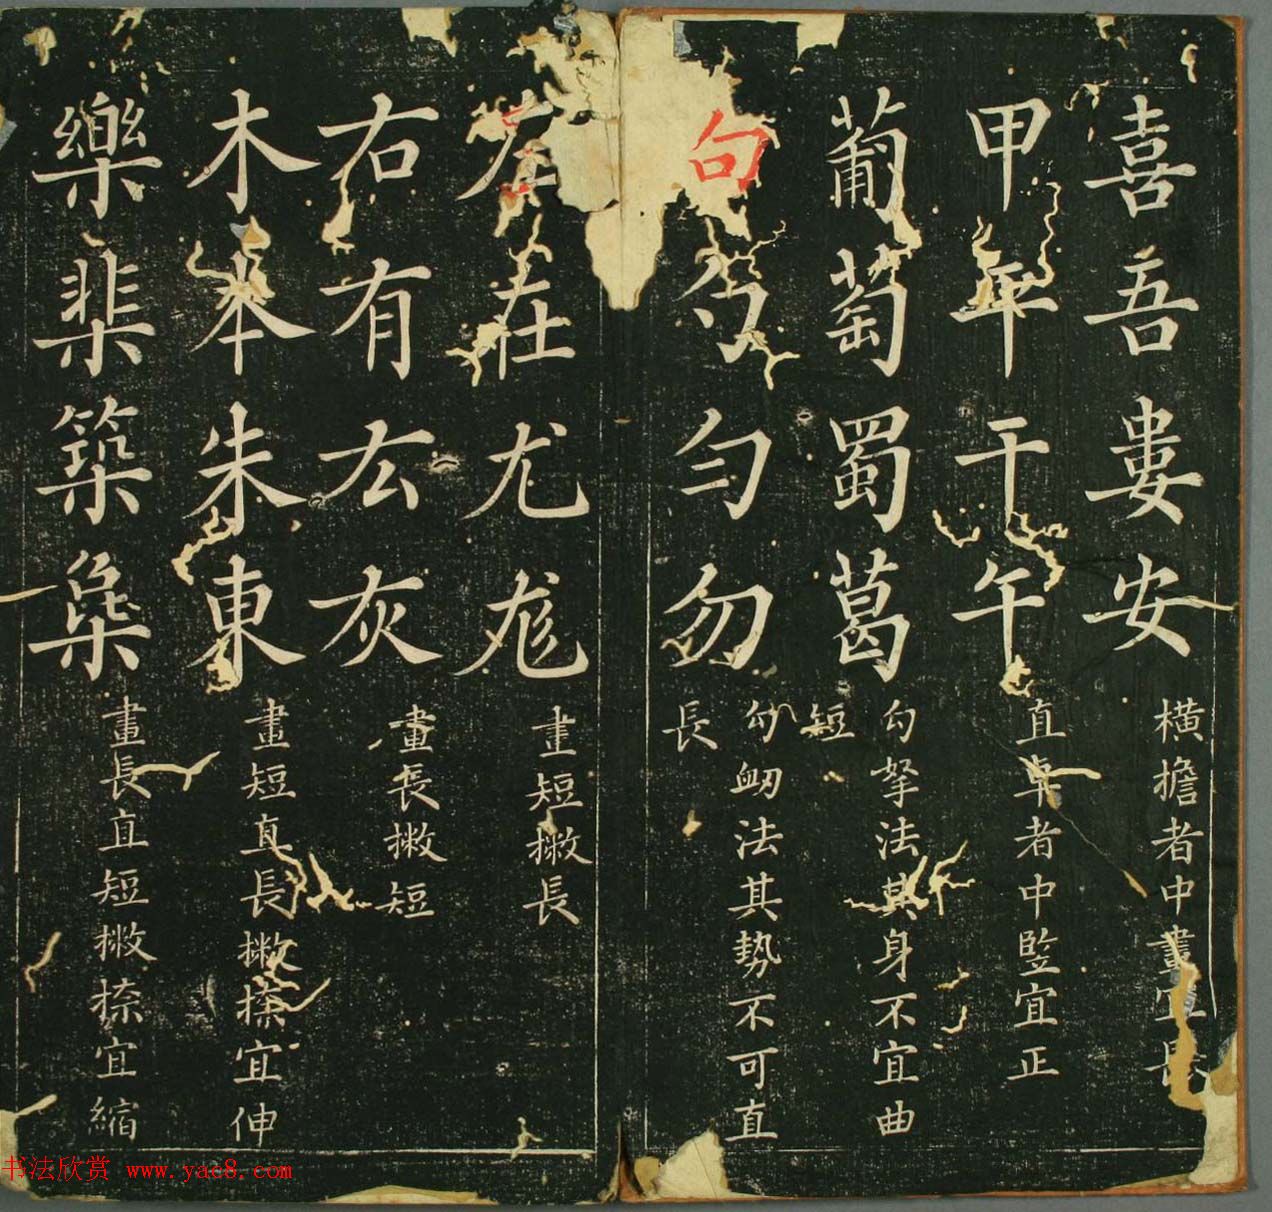 喜吾婁安 橫擔者中畫宜長
甲平干午 直卓者中竪宜正
葡萄蜀葛 勾拏法其身不宜曲
短
句勺勻勿 勾衂法其勢不可直
長
左在尤尨 畫短撇長
右有厷灰 畫長撇短
木本朱東 畫短直長撇捺宜伸
樂棐築 畫長直短撇捺宜縮
书法欣赏 www.yac8.com